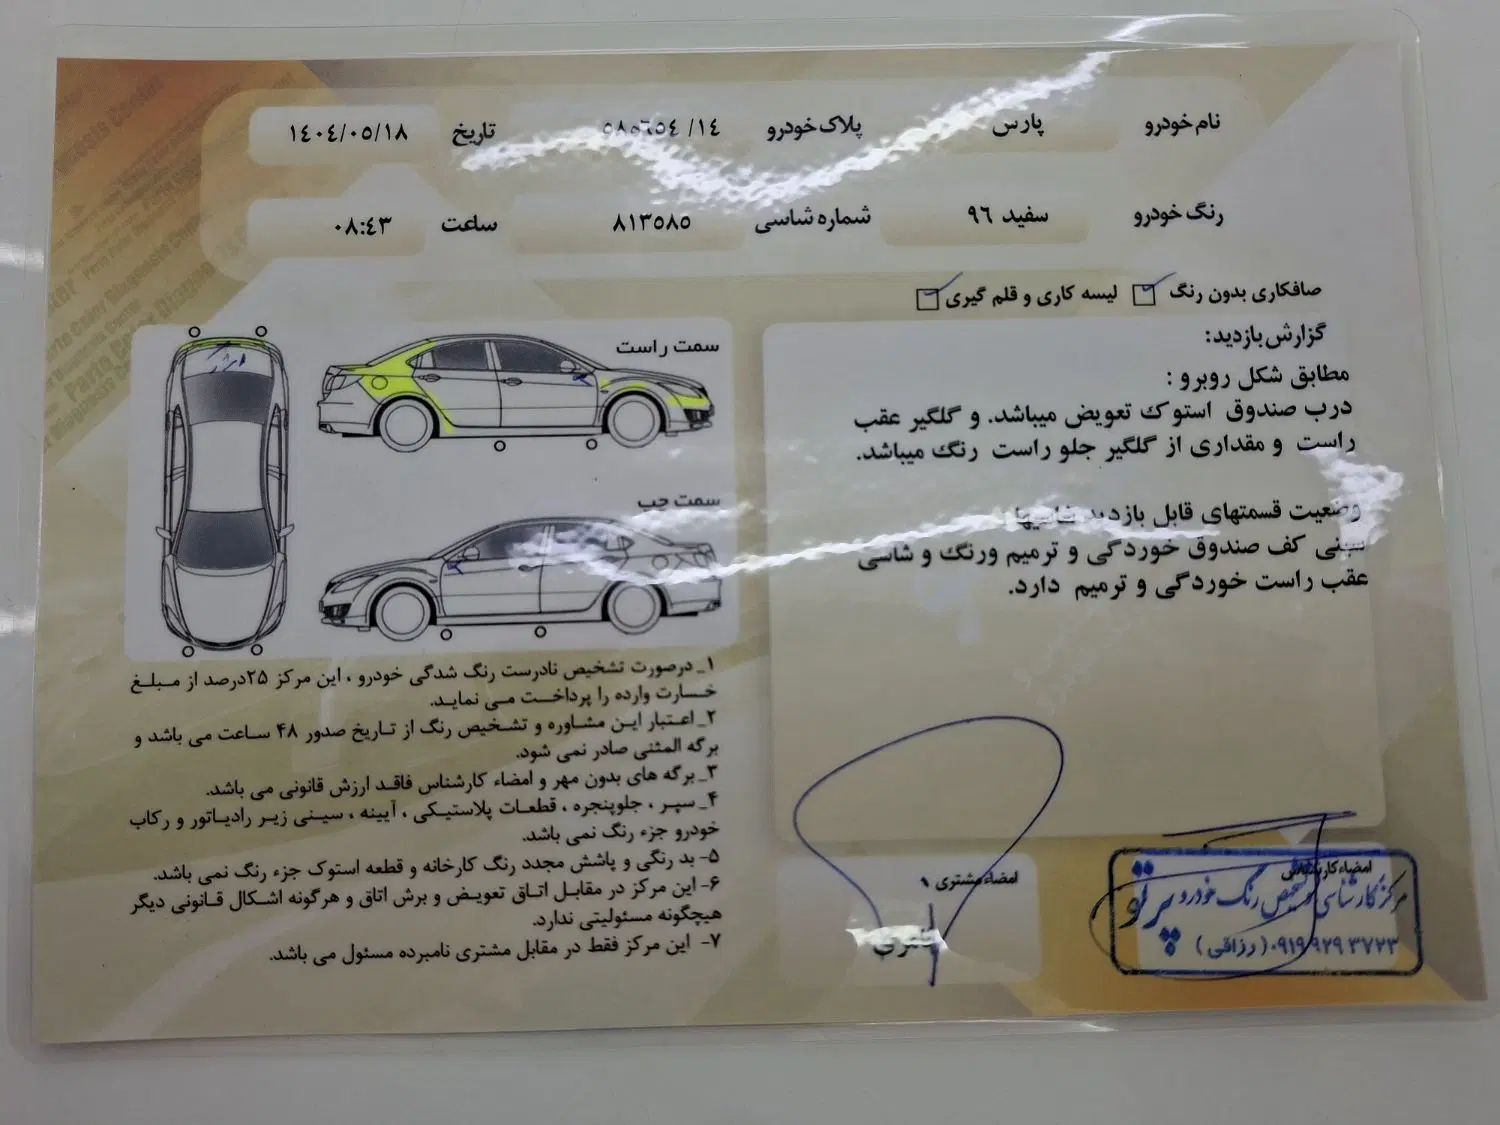 نام خودرو پارس پلاک خودرو ۱۴/ ۵۸۵۶۵۴ تاریخ ۱۴۰۴/۰۵/۱۸
رنگ خودرو سفید ۹۶ شماره شاسی ۸۱۳۵۸۵ ساعت ۰۸:۴۳
صافکاری بدون رنگ لیسه کاری و قلم گیری
گزارش بازدید:
مطابق شکل روبرو :
درب صندوق استوک تعویض میباشد. و گلگیر عقب
راست و مقداری از گلگیر جلو راست رنگ میباشد.
وضعیت قسمتهای قابل بازدید شاسیها
سینی کف صندوق خوردگی و ترمیم ورنگ و شاسی
عقب راست خوردگی و ترمیم دارد.
سمت راست
سمت چپ
۱_ درصورت تشخیص نادرست رنگ شدگی خودرو ، این مرکز ۲۵درصد از مبلغ
خسارت وارده را پرداخت می نماید.
۲_ اعتبار این مشاوره و تشخیص رنگ از تاریخ صدور ۴۸ ساعت می باشد و
برگه المثنی صادر نمی شود.
۳_ برگه های بدون مهر و امضاء کارشناس فاقد ارزش قانونی می باشد.
۴_ سپر ، جلوپنجره ، قطعات پلاستیکی ، آیینه ، سینی زیر رادیاتور و رکاب
خودرو جزء رنگ نمی باشد.
۵- بد رنگی و پاشش مجدد رنگ کارخانه و قطعه استوک جزء رنگ نمی باشد.
۶- این مرکز در مقابل اتاق تعویض و برش اتاق و هرگونه اشکال قانونی دیگر
هیچگونه مسئولیتی ندارد.
۷- این مرکز فقط در مقابل مشتری نامبرده مسئول می باشد.
امضاء مشتری
امضاء کارشناس
مرکز کارشناسی تشخیص رنگ خودرو پرتو
۰۹۱۹ ۹۲۹ ۳۷۲۳ (رزاقی)